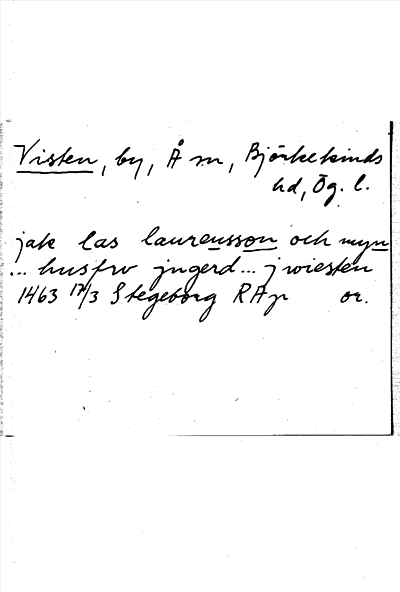 Visten, by, Å sn, Björkekinds
hd, Ög. l.
jak las laurensson och myn
... husfrv jngerd... j wiesten
1463 17/3 Stegeborg RAp or.